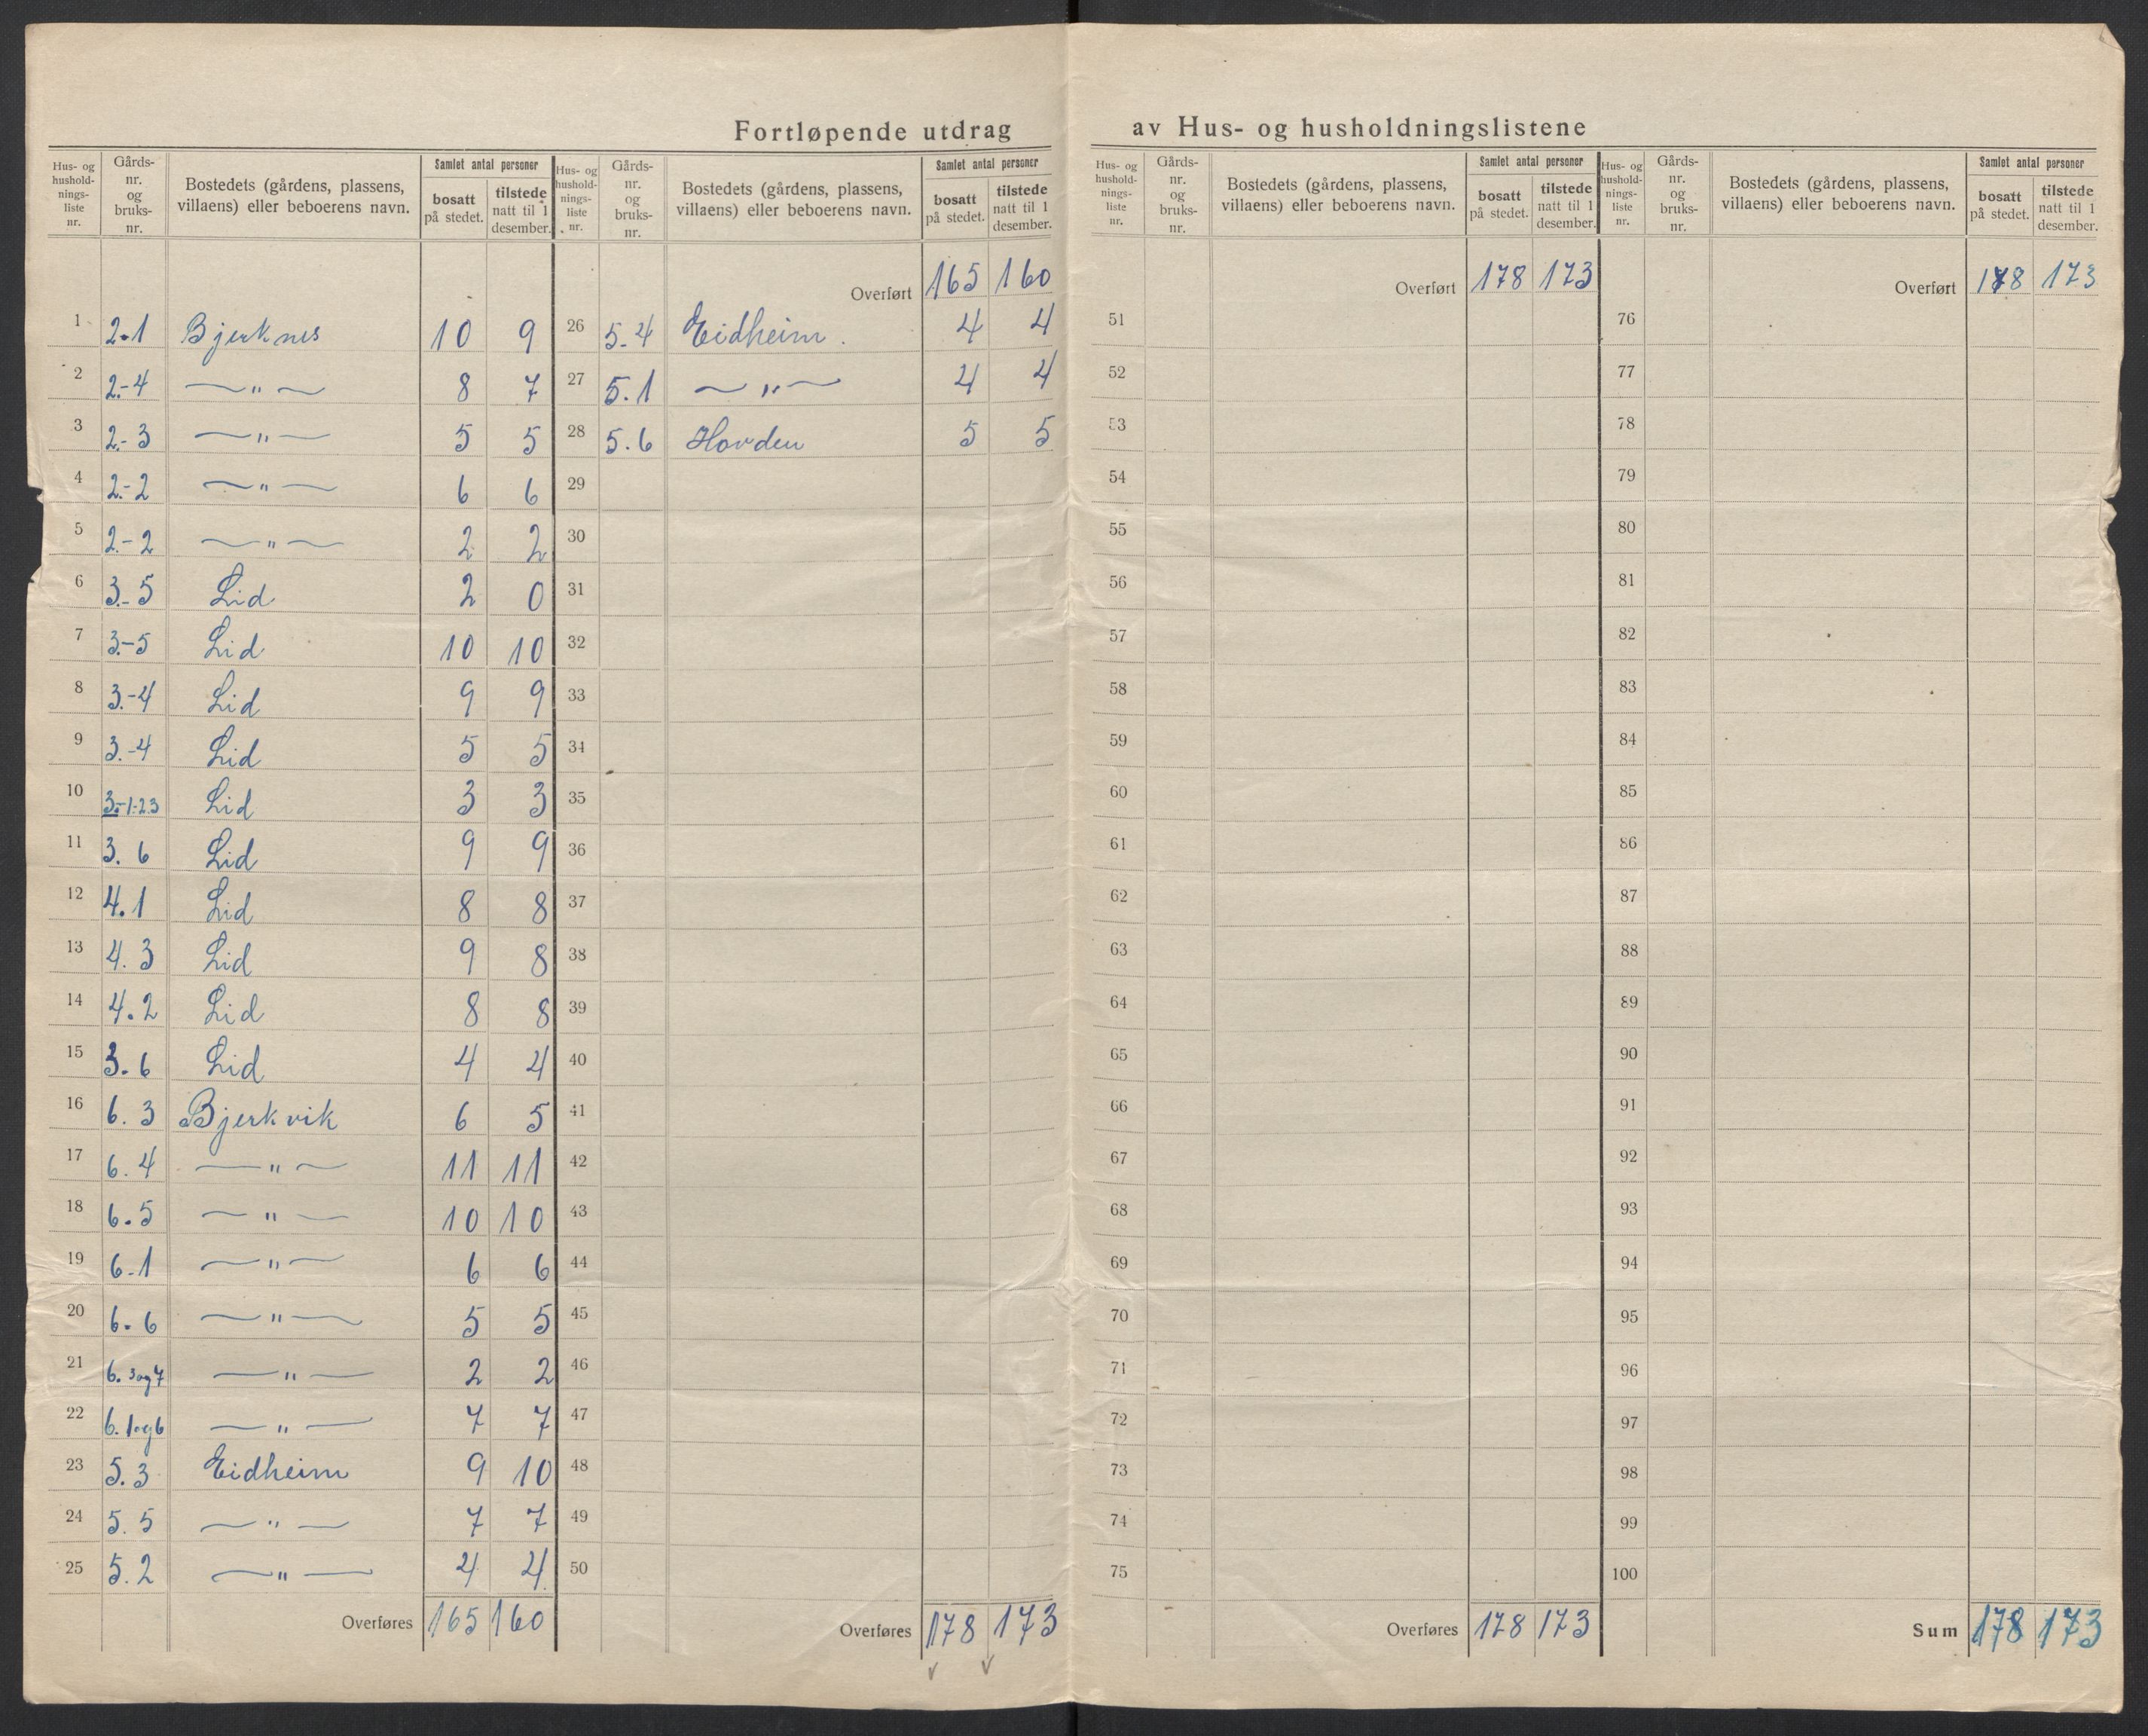 Fortløpende utdrag av Hus- og husholdningslistene
Hus- og hushold-nings-liste nr. | Gårds-nr. og bruks-nr. | Bostedets (gårdens, plassens, villaens) eller beboerens navn. | Samlet antal personer | bosatt på stedet. | tilstede natt til 1 desember.
1 2.1 Bjerknes 10 9
2 2.-4 —〃— 8 7
3 2.-3 —〃— 5 5
4 2.-2 —〃— 6 6
5 2.-2 —〃— 2 2
6 3.-5 Lid 2 0
7 3.-5 Lid 10 10
8 3.-4 Lid 9 9
9 3.-4 Lid 5 5
10 3.-1-2.3 Lid 3 3
11 3.6 Lid 9 9
12 4.1 Lid 8 8
13 4.3 Lid 9 8
14 4.2 Lid 8 8
15 3.6 Lid 4 4
16 6.3 Bjerkvik 6 5
17 6.4 —〃— 11 11
18 6.5 —〃— 10 10
19 6-1 —〃— 6 6
20 6.6 —〃— 5 5
21 6. 3 og 7 —〃— 2 2
22 6. 1 og 6 —〃— 7 7
23 5.3 Eidheim 9 10
24 5.5 —〃— 7 7
25 5.2 —〃— 4 4
Overføres 165 160
Hus- og hushold-nings-liste nr. | Gårds-nr. og bruks-nr. | Bostedets (gårdens, plassens, villaens) eller beboerens navn. | Samlet antal personer | bosatt på stedet. | tilstede natt til 1 desember.
Overført 165 160
26 5.4 Eidheim. 4 4
27 5.1 —〃— 4 4
28 5.6 Hovden 5 5
29
30
31
32
33
34
35
36
37
38
39
40
41
42
43
44
45
46
47
48
49
50
Overføres 178 173
Hus- og hushold-nings-liste nr. | Gårds-nr. og bruks-nr. | Bostedets (gårdens, plassens, villaens) eller beboerens navn. | Samlet antal personer | bosatt på stedet. | tilstede natt til 1 desember.
Overført 178 173
51
52
53
54
55
56
57
58
59
60
61
62
63
64
65
66
67
68
69
70
71
72
73
74
75
Overføres 178 173
Hus- og hushold-nings-liste nr. | Gårds-nr. og bruks-nr. | Bostedets (gårdens, plassens, villaens) eller beboerens navn. | Samlet antal personer | bosatt på stedet. | tilstede natt til 1 desember.
Overført 178 173
76
77
78
79
80
81
82
83
84
85
86
87
88
89
90
91
92
93
94
95
96
97
98
99
100
Sum 178 173